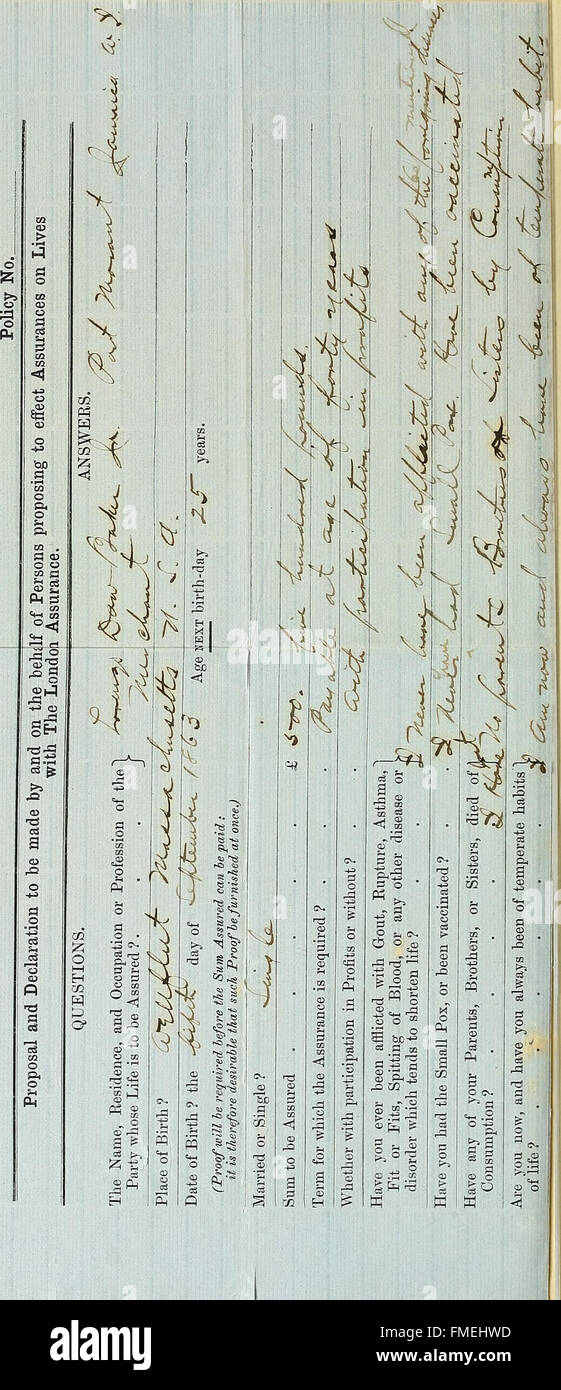 Policy No.
Proposal and Declaration to be made by and on the behalf of Persons proposing to effect Assurances on Lives
with The London Assurance.
QUESTIONS. ANSWERS.
The Name, Residence, and Occupation or Profession of the } Lorenzo Dow Baker Jr. Port Morant Jamaica W. I.
Party whose Life is to be Assured? . . . Merchant
Place of Birth? Wellfleet Massachusetts U. S. A.
Date of Birth? the fifth day of September 1863 Age NEXT birth-day 25 years.
(Proof will be required before the Sum Assured can be paid:
it is therefore desirable that such Proof be furnished at once.)
Married or Single? Single
Sum to be Assured . . . . . . . £ 500. five hundred pounds.
Term for which the Assurance is required? . . . . Payable at age of forty years
Whether with participation in Profits or without? . . . with participation in profits
Have you ever been afflicted with Gout, Rupture, Asthma,
Fit or Fits, Spitting of Blood, or any other disease or } I never have been afflicted with any of the foregoing diseases
disorder which tends to shorten life? mentioned
Have you had the Small Pox, or been vaccinated? . . I never have had Small Pox. Have been vaccinated
Have any of your Parents, Brothers, or Sisters, died of } I have lost No parents Brothers or Sisters by Consumption
Consumption? . . . . . .
Are you now, and have you always been of temperate habits } I am now and always have been of temperate habits.
of life? . . . . . .
alamy
alamy stock photo
FMEHWD
www.alamy.com